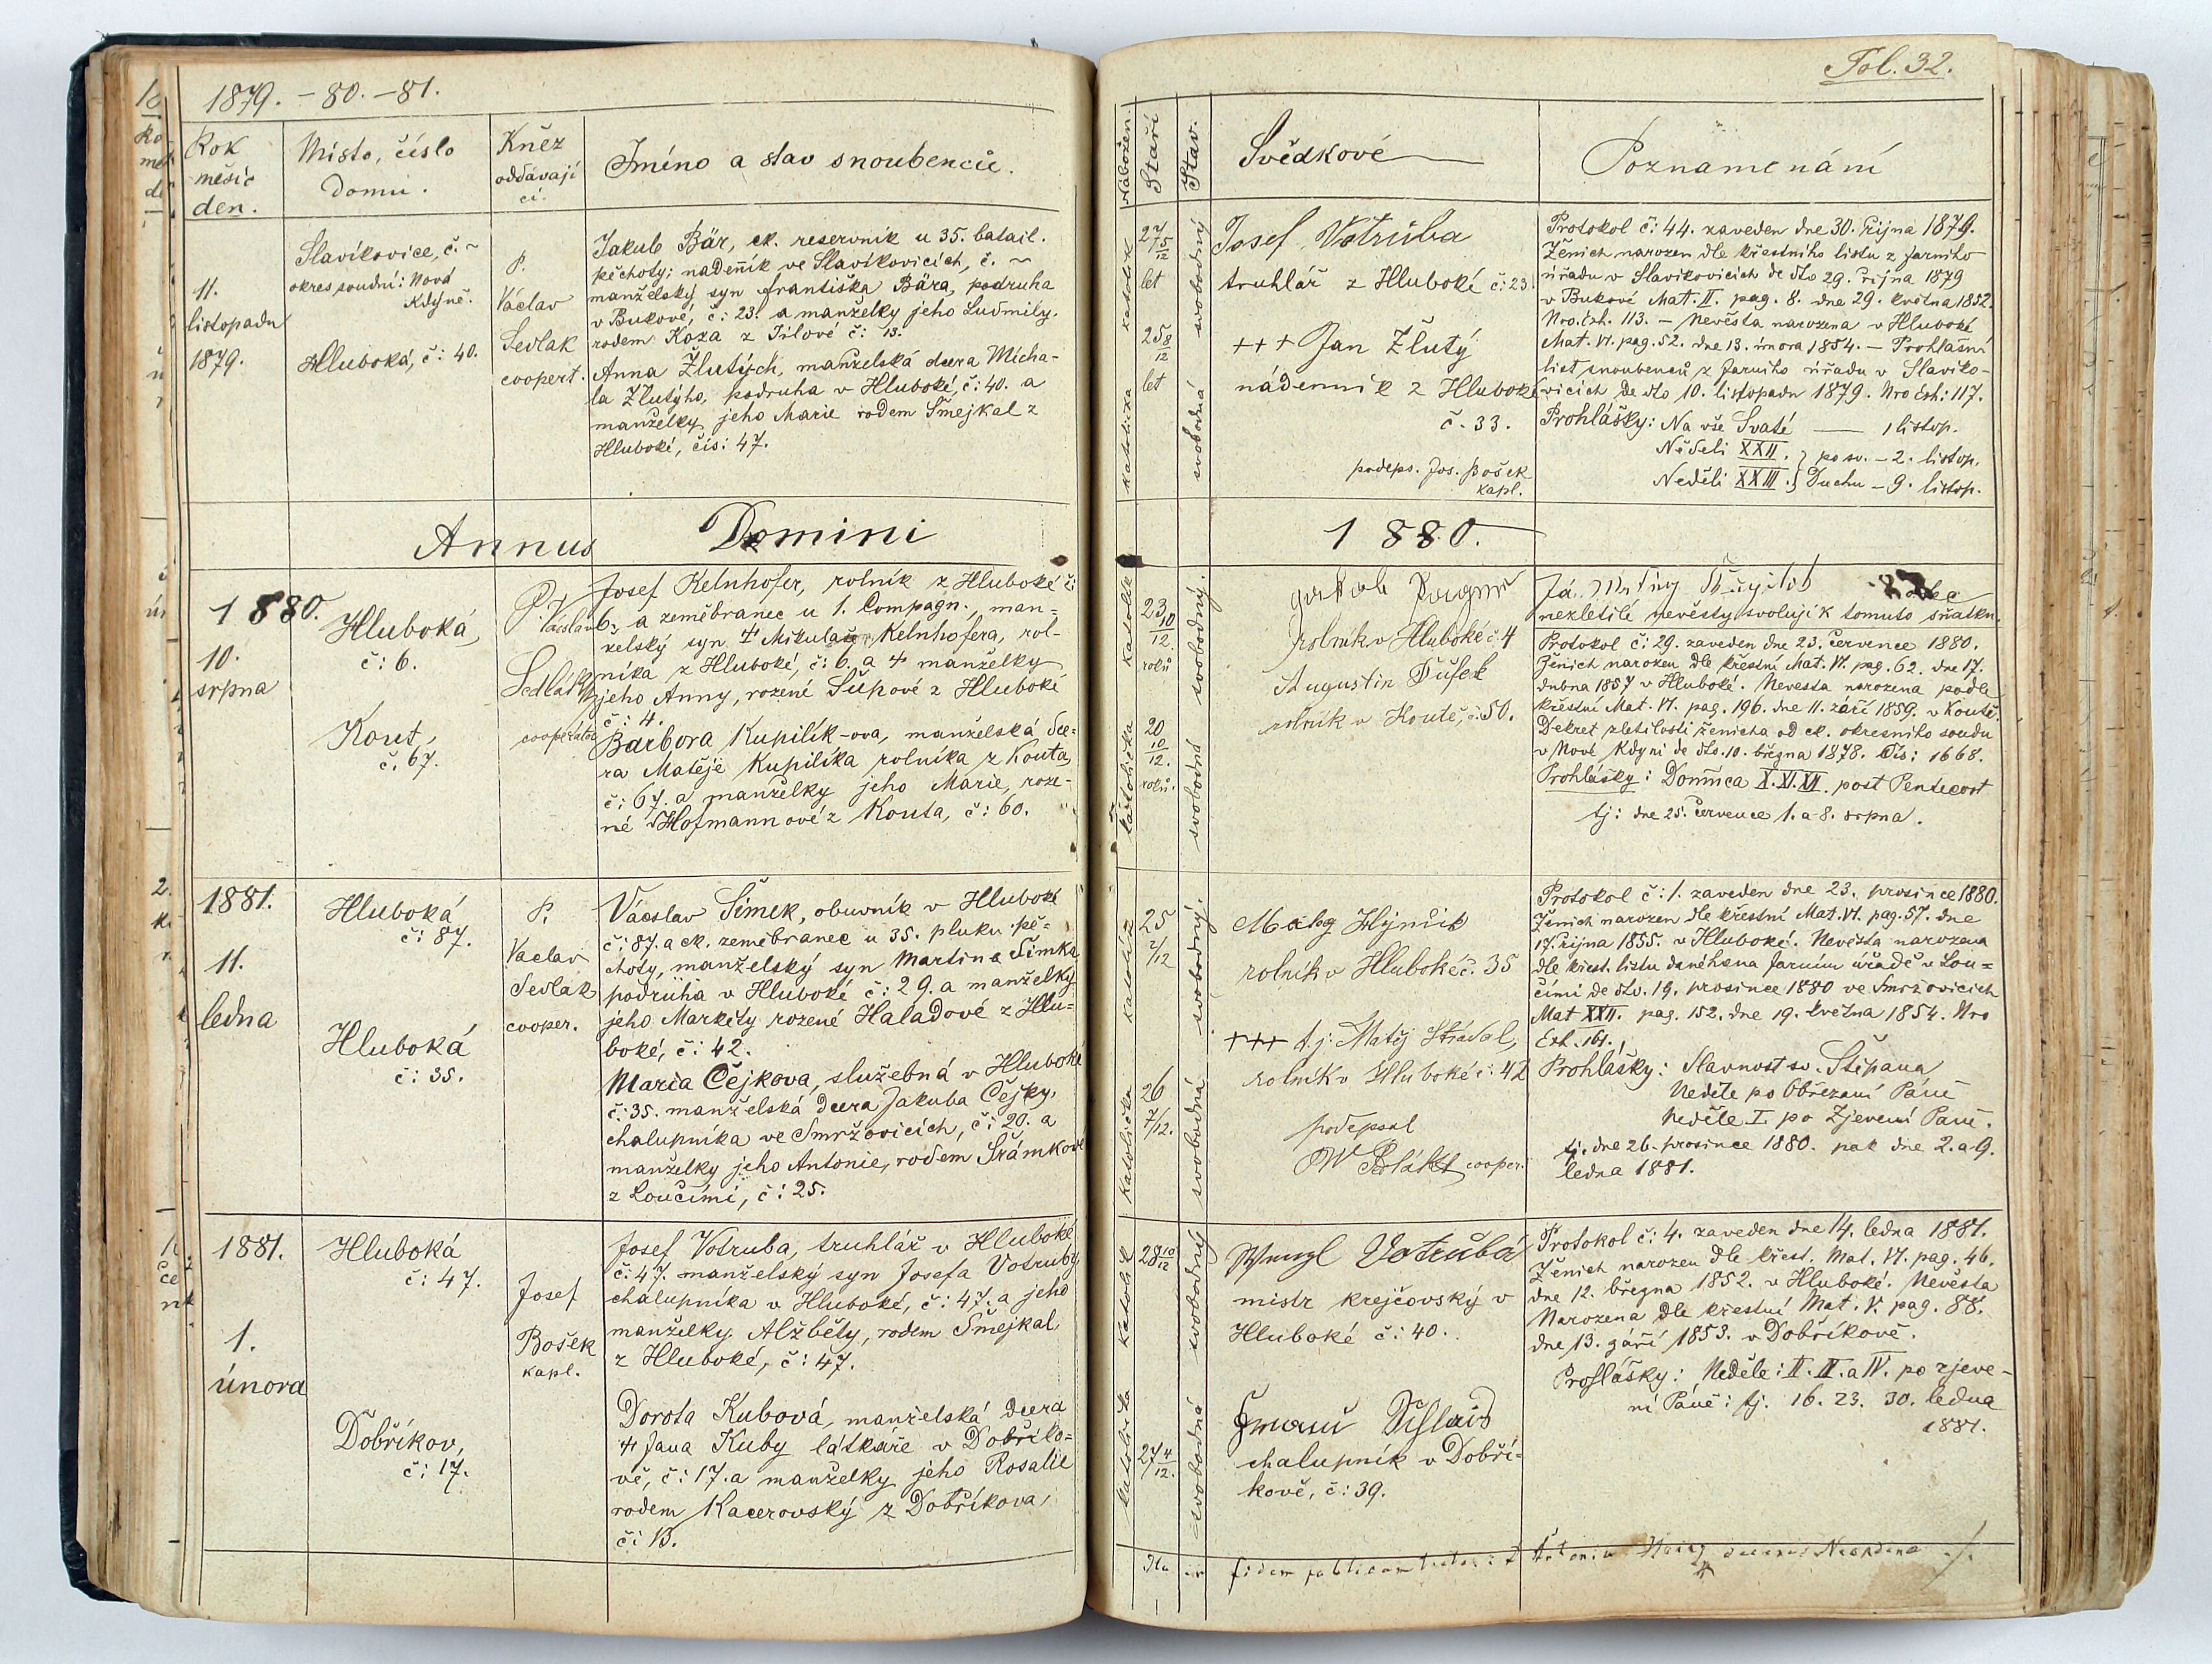 1879. – 80. – 81.
Rok
měsíc
den.
Místo, číslo
domu.
Kněz
oddávají
cí.
Jméno a stav snoubenců.
11.
listopadu
1879.
Slavíkovice, č. ~
okres soudní: Nová
Kdyně.
Hluboká, č: 40.
P.
Václav
Sedlak
coopert.
Jakub Bär, ck. reservník u 35. batail.
pěchoty; nadeník ve Slavíkovicích, č. ~
manželský syn Františka Bära, podruha
v Bukové, č: 23. a manželky jeho Ludmily.
rodem Koza z Jílové č: 13.
Anna Žlutých, manželská dcera Micha-
la Žlutýho, podruha v Hluboké, č: 40. a
manželky jeho Marie rodem Šmejkal z
Hluboké, čís: 47.
Annus Domini
1880.
10.
srpna
Hluboká,
č: 6.
Kout,
č. 67.
P.
Václav
Sedlák
cooperátor
Josef Kelnhofer, rolník z Hluboké č:
6. a zeměbranec u 1. Compagn., man-
želský syn † Mikuláše Kelnhofera, rol-
níka z Hluboké, č: 6. a † manželky
jeho Anny, rozené Šupové z Hluboké
č: 4.
Barbora Kupilík-ova, manželská dce-
ra Matěje Kupilíka rolníka z Kouta,
č: 67. a manželky jeho Marie, roze-
né Hofmannové z Kouta, č: 60.
1881.
11.
ledna
Hluboká
č: 87.
Hluboká
č: 35.
P.
Vaclav
Sedlák
cooper.
Václav Šimek, obuvník v Hluboké
č: 87. a ck. zeměbranec u 35. pluku pě-
choty, manželský syn Martina Šimka
podrúha v Hluboké č: 29. a manželky
jeho Markéty rozené Haladové z Hlu-
boké, č: 42.
Maria Čejkova, služebná v Hluboké
č: 35. manželská dcera Jakuba Čejky,
chalupníka ve Smržovicích, č: 20. a
manželky jeho Antonie, rodem Šrámkové
z Loučími, č: 25.
1881.
1.
února
Hluboká
č: 47.
Dobříkov,
č: 17.
Josef
Bošek
kapl.
Josef Votruba, truhlář v Hluboké
č: 47. manželský syn Josefa Votruby
chalupníka v Hluboké, č: 47. a jeho
manželky Alžběty, rodem Šmejkal
z Hluboké, č: 47.
Dorota Kubová, manželská dcera
† Jana Kuby látkaře v Dobříko-
vě, č: 17. a manželky jeho Rosalie
rodem Kacerovský z Dobříkova,
č: 13.
Fol. 32.
Nábožen.
Staří
Stav.
Svědkové
Poznamenání
katolík
katolička
27 5/12
let
25 8/12
let
svobodný
svobodná
Josef Votruba
truhlář z Hluboké č: 23.
+++ Jan Žlutý
nádenník z Hluboké
č. 33.
podeps. Jos. Bošek
kapl.
Protokol č: 44. zaveden dne 30. Října 1879.
Ženich narozen dle křestního listu z farního
úřadu v Slavikovicích de dto 29. října 1879
v Bukové Mat. II. pag. 8. dne 29. května 1852.
Nro. Exh. 113. – Nevěsta narozena v Hluboké
Mat. VI. pag. 52. dne 13. února 1854. – Prohlašní
list snoubenců z farního úřadu v Slaviko-
vicích de dto 10. listopadu 1879. Nro Exh: 117.
Prohlášky: Na vše Svaté — 1 listop.
Něděli XXII. } po sv. – 2. listop.
Neděli XXIII. } Duchu – 9. listop.
1880.
katolík
katolička
23 10/12
roků
20
10/12.
roků.
svobodný.
svobodná
rolník v Hluboké č. 4
Augustin Dufek
rolník v Koutě, č. 50.
nezletilé nevěsty svoluji k tomuto sňatku.
Protokol č: 29. zaveden dne 23. července 1880.
Ženich narozen dle křestní Mat. VI. pag. 62. dne 17.
dubna 1857 v Hluboké. Nevesta narozena podle
křestní Mat. VI. pag. 196. dne 11. září 1859. v Koutě.
Dekret zletilosti ženicha od ck. okresního soudu
v Nové Kdyni de dto. 10. března 1878. Čís: 1668.
Prohlášky: Domica X. XI. XII. post Pentecost
tj: dne 25. července 1. a 8. srpna.
katolík
katolička
25
2/12
26
7/12.
svobodný.
svobodná
rolník v Hluboké č. 35
+++ t. j. Matěj Stradal,
rolník v Hluboké č: 42
podepsal
cooper.
Protokol č: 1. zaveden dne 23. prosince 1880.
Ženich narozen dle křestní Mat. VI. pag. 57. dne
17. října 1855. v Hluboké. Nevěsta narozena
dle křest. listu daného na farním úřadě v Lou-
čími de dto. 19. prosince 1880 ve Smržovicích
Mat XXII. pag. 152. dne 19. května 1854. Nro
Exh. 161.
Prohlášky: Slavnost sv. Štěpana
Neděle po Obřezaní Páně
Neděle I. po Zjevení Paně.
tj. dne 26. prosince 1880. pak dne 2. a 9.
ledna 1881.
katolík
katolička
28 10/12
27 4/12.
svobodný
svobodná
Wenzl Votruba
mistr krejčovský v
Hluboké č: 40.
chalupník v Dobří-
kově, č: 39.
Protokol č: 4. zaveden dne 14. ledna 1881.
Ženich narozen dle křest. Mat. VI. pag. 46.
dne 12. března 1852. v Hluboké. Nevěsta
Narozena dle křestní Mat. V. pag. 88.
dne 13. září 1853. v Dobříkově.
Prohlášky: Neděle: II. III. a IV. po zjeve-
ní Páně: tj. 16. 23. 30. ledna
1881.
fidem publicam